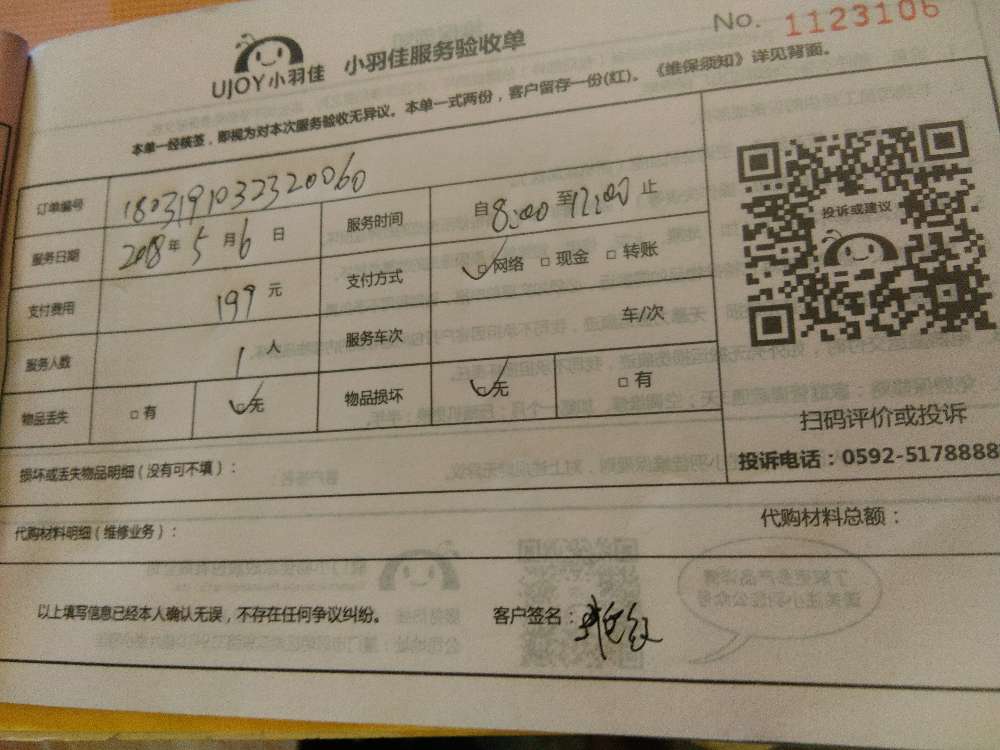 No. 1123106
UJOY小羽佳 小羽佳服务验收单
本单一经核签，即视为对本次服务验收无异议。本单一式两份，客户留存一份(红)。《维保须知》详见背面。
订单编号 180319103232 0060
服务日期 2018年5月6日 服务时间 自8:00至12:00止
支付费用 199元 支付方式 □网络 □现金 □转账
服务人数 1人 服务车次 车/次
物品丢失 □有 □无 物品损坏 □无 □有
投诉或建议
扫码评价或投诉
投诉电话：0592-5178888
损坏或丢失物品明细（没有可不填）：
代购材料明细（维修业务）： 代购材料总额：
以上填写信息已经本人确认无误，不存在任何争议纠纷。 客户签名：